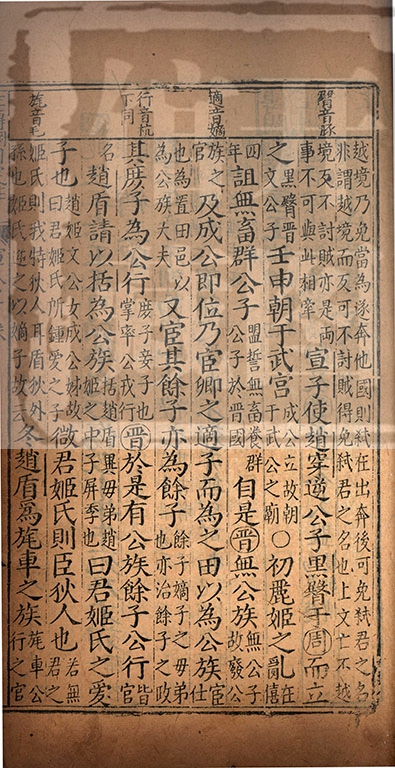 臀音豚
越境乃免當為遂奔他國則弒在出奔後可免弒君之名
非謂越境而反可不討賊得免弒君之名也上文亡不越
境反不討賊亦是兩
事不可與此相牽
宣子使趙穿逆公子黑臀于周而立
之
黑臀晉
文公子
壬申朝于武宮
成公立故朝
于武公之廟
○初麗姬之亂
在
僖
四
年
詛無畜群公子
盟誓無畜養群
公子於晉國
自是晉無公族
無公子
故廢公
適音嫡
族之
官
及成公即位乃宦卿之適子而為之田以為公族
宦
仕
也為置田邑以
為公族大夫
又宦其餘子亦為餘子
餘子嫡子之母弟
也亦治餘子之政
行音杭
下同
其庶子為公行
庶子妾子也
掌率公戎行
晉於是有公族餘子公行
皆
官
名
趙盾請以括為公族
括趙盾異母弟趙
姬之中子屏季也
曰君姬氏之愛
子也
趙姬文公女成公姊故
曰君姬氏所鍾愛之子
微君姬氏則臣狄人也
若無
君之
旄音毛
姬氏則我特狄人耳盾狄外
孫也姬氏逆之以嫡子故云
冬趙盾為旄車之族
旄車公
行之官